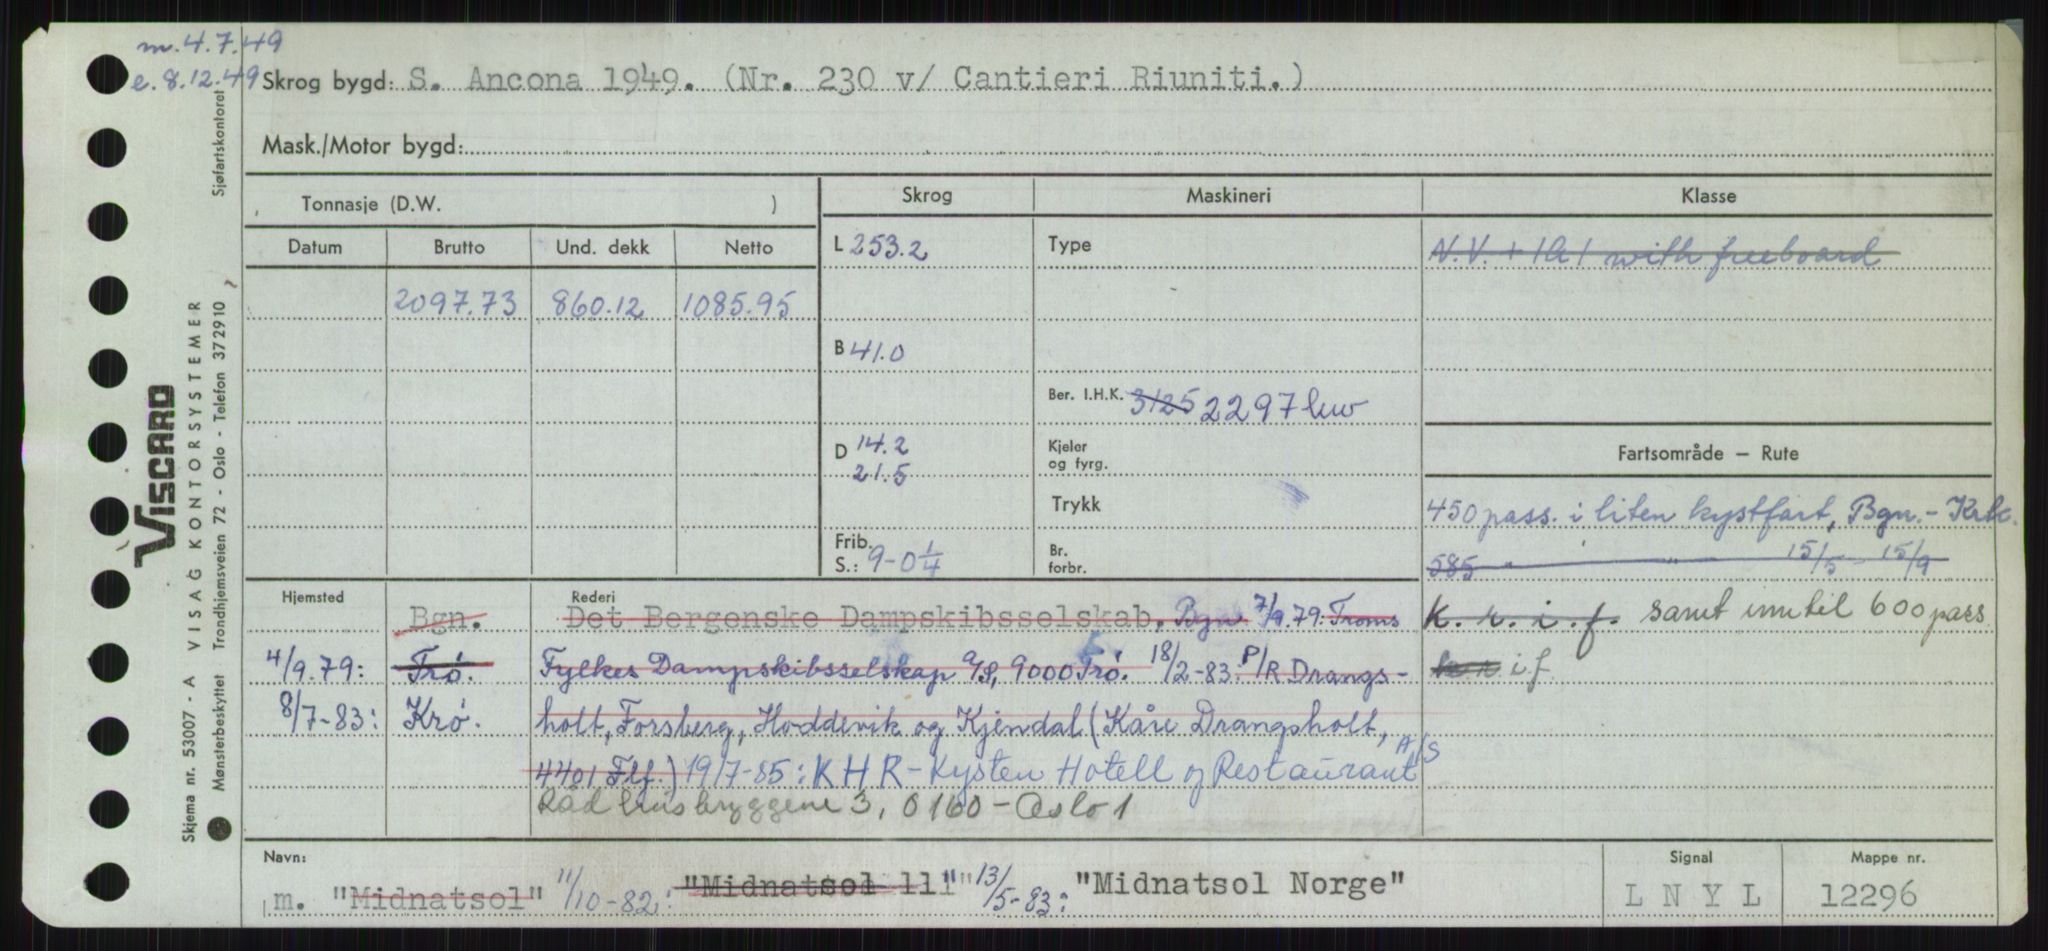 m. 4.7.49
e. 8.12.49
Skrog bygd: S. Ancona 1949. (Nr. 230 v/ Cantieri Riuniti.)
Mask./Motor bygd:
Tonnasje (D.W. )
Skrog Maskineri Klasse
Datum Brutto Und. dekk Netto
L 253.2 Type N.V. + 1A1 with freeboard
2097.73 860.12 1085.95
B 41.0
Ber. I.H.K. 3125 2297 kw
D 14.2
21.5
Kjeler
og fyrg.
Fartsområde – Rute
Trykk
450 pass. i liten kystfart, Bgn. - Krk.
Frib.
S.: 9-0 1/4
Br.
forbr.
585 " " 15/5 - 15/9
Hjemsted Rederi
Bgn. Det Bergenske Dampskibsselskab, Bgn 7/9.79: Troms
k. r. i. f. samt inntil 600 pass.
4/9.79: Trø. Fylkes Dampskibsselskap A/S, 9000 Trø. 18/2-83: P/R Drangs-
i f.
8/7-83: Krø. holt, Forsberg, Hoddevik og Kjendal (Kåre Drangsholt,
4401 Flf.) 19/7-85: KHR - Kysten Hotell og Restaurant A/S
Rådhusbryggene 3, 0160 - Oslo 1
Navn: Signal Mappe nr.
m. "Midnatsol" 11/10-82: "Midnatsol ll" 13/5-83: "Midnatsol Norge" L N Y L 12296
Sjøfartskontoret
VISCARD
Skjema nr. 53007 - A VISAG KONTORSYSTEMER
Mønsterbeskyttet Trondhjemsveien 72 - Oslo - Telefon 372910